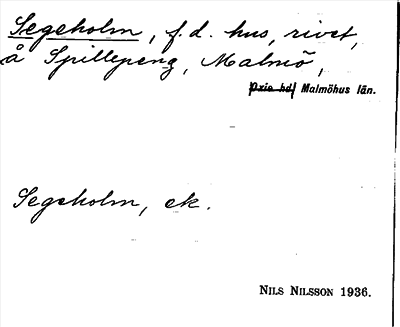 Segeholm, f.d. hus, rivet,
å Spillepeng, Malmö,
Oxie hd Malmöhus län.
Segeholm, ek.
NILS NILSSON 1936.